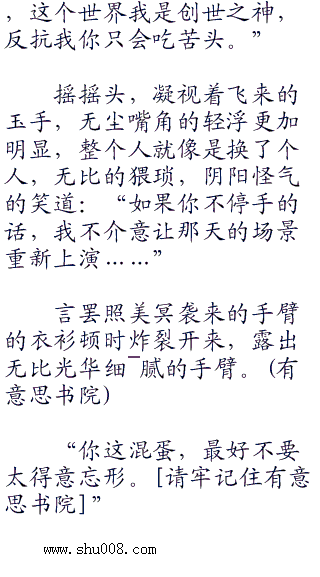 ，这个世界我是创世之神，
反抗我你只会吃苦头。”
摇摇头，凝视着飞来的
玉手，无尘嘴角的轻浮更加
明显，整个人就像是换了个
人，无比的猥琐，阴阳怪气
的笑道：“如果你不停手的
话，我不介意让那天的场景
重新上演……”
言罢照美冥袭来的手臂
的衣衫顿时炸裂开来，露出
无比光华细¯腻的手臂。(有
意思书院)
“你这混蛋，最好不要
太得意忘形。[请牢记住有意
思书院]”
www.shu008.com